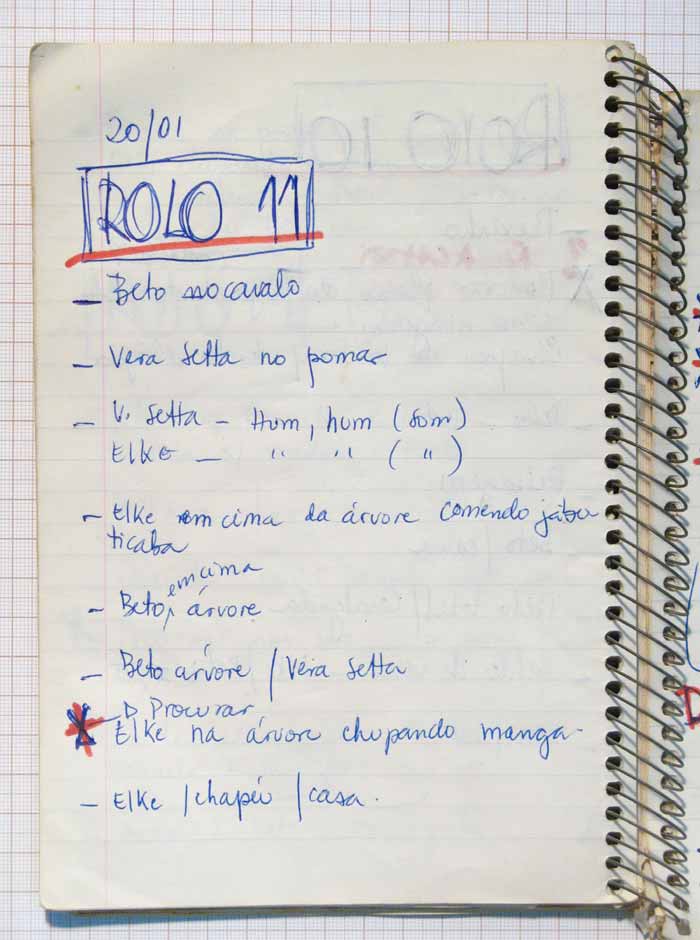 20/01
ROLO 11
- Beto no cavalo
- Vera Setta no pomar
- V. Setta - Hum, hum (som)
Elke - " " (")
- Elke em cima da árvore comendo jabu
ticaba
em cima
- Beto, árvore
- Beto árvore / Vera Setta
Procurar
Elke na árvore chupando manga.
- Elke / chapéu / casa.
ROLO 10